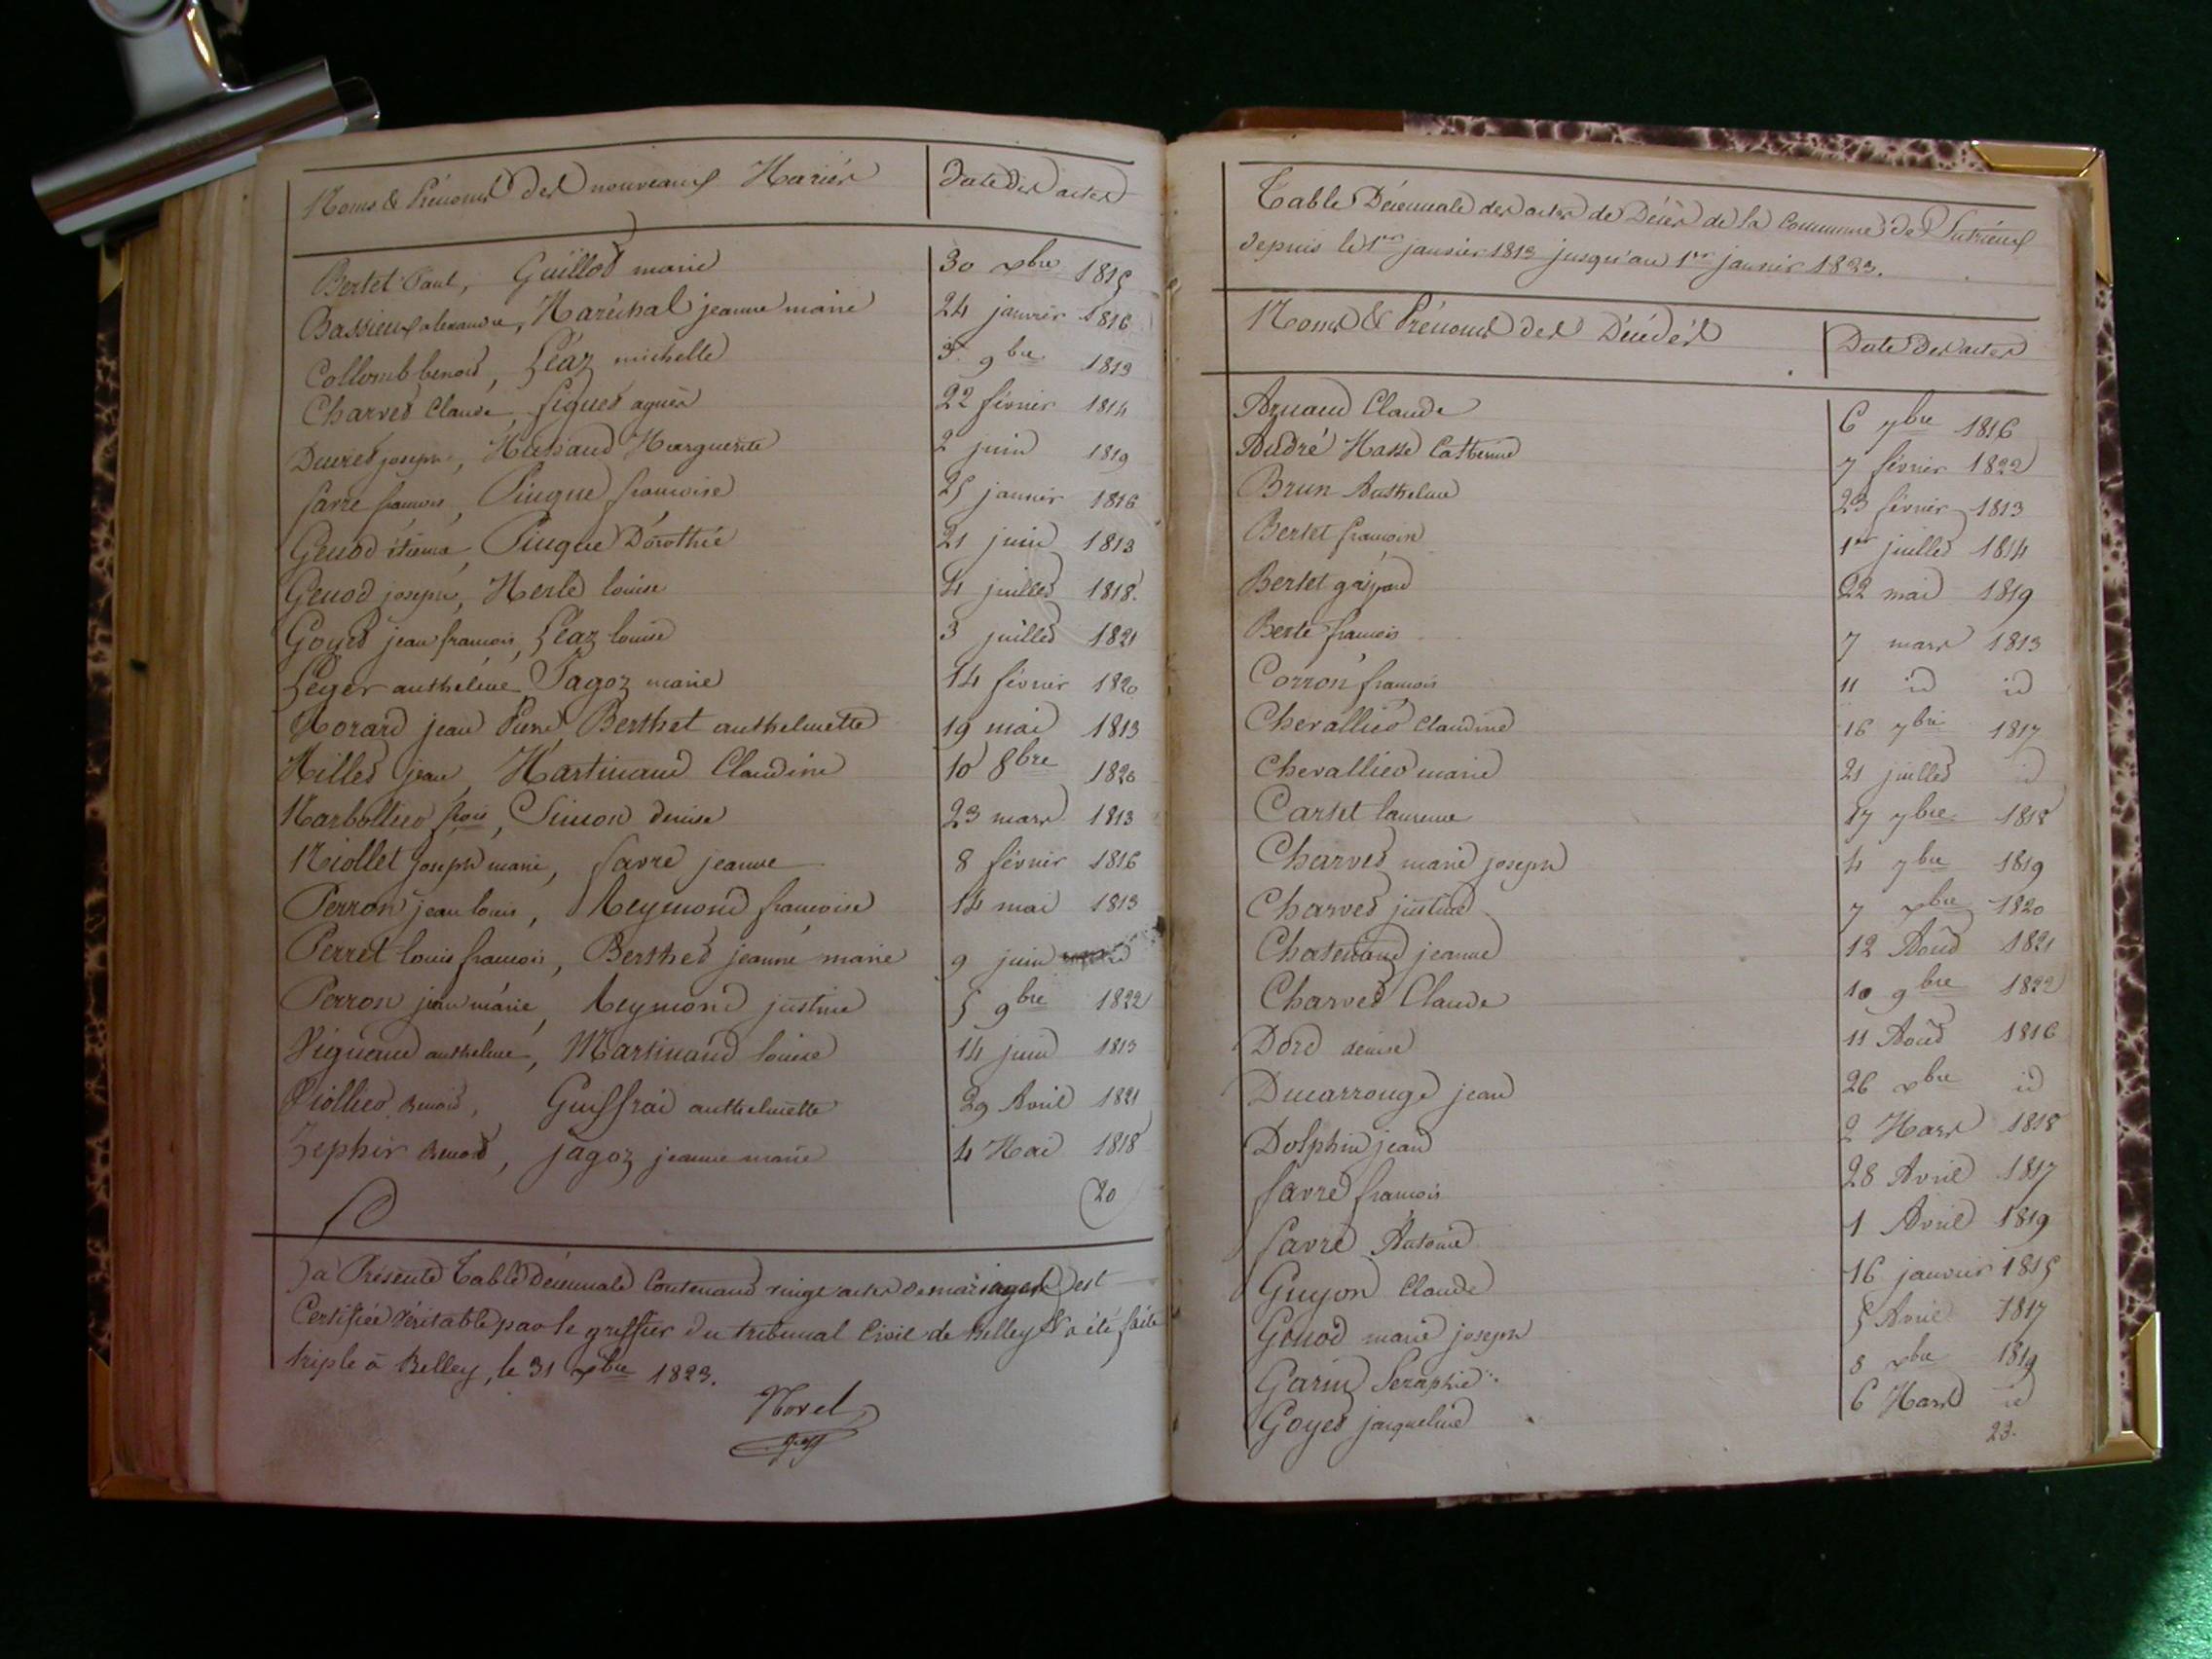 Noms & Prénoms des nouveaux Mariés Date des actes
Bertet Paul, Guillot marie 30 xbre 1815
Bassieux alexandre, Maréchal jeanne marie 24 janvier 1816
Collomb benoit, Léaz michelle 3 9bre 1813
Charvet Claude, figuet agnès 22 février 1814
Ducret joseph, Michaud Marguerite 2 juin 1819
favre francois, Pingue francoise 25 janvier 1816
Genod étienne, Pingue Dorothée 21 juin 1813
Genod joseph, Merle louise 4 juillet 1818
Goyet jean francois, Léaz louise 3 juillet 1821
Léger anthelme, Jagoz marie 14 février 1820
Morard jean Pierre, Berthet anthelmette 19 mai 1813
Millet jean, Martinand Claudine 10 8bre 1820
Marbollier frois, Simon denise 23 mars 1813
Niollet Joseph marie, favre jeanne 8 février 1816
Perron jean louis, Reymond francoise 14 mai 1813
Perret louis francois, Berthet jeanne marie 9 juin id
Perron jean marie, Reymond justine 5 9bre 1822
Vignand anthelme, Martinand louise 14 juin 1813
Viollier Benoit, Guiffrai anthelmette 29 Avril 1821
Zephir Benoit, jagoz jeanne marie 4 Mai 1818
20
La Présente Table Décennale Contenant vingt actes de mariages est
Certifiée Véritable par le greffier du tribunal Civil de Belley & a été faite
triple à Belley, le 31 xbre 1823.
Morel
Table Décennale des actes de Décès de la Commune de Sutrieux
depuis le 1er janvier 1813 jusqu'au 1er janvier 1823.
Noms & Prénoms des Décédés Date des actes
Arnaud Claude 6 7bre 1816
André Masse Catherine 7 février 1822
Brun Anthelme 23 février 1813
Bertet francois 1er juillet 1814
Bertet gaspard 22 mai 1819
Berte francois 7 mars 1813
Corron francois 11 id id
Chevallier Claudine 16 7bre 1817
Chevallier marie 21 juillet id
Carset laurence 17 7bre 1818
Charvet marie joseph 4 7bre 1819
Charvet justine 7 xbre 1820
Chatenand jeanne 12 Août 1821
Charvet Claude 10 9bre 1822
Dord denise 11 Août 1816
Ducarrouge jean 26 xbre id
Dolphin jean 2 Mars 1818
favre francois 28 Avril 1817
favre Antoine 1 Avril 1819
Guyon Claude 16 janvier 1815
Genod marie joseph 5 Avril 1817
Garin Seraphie 8 xbre 1819
Goyet jacqueline 6 Mars id
23.